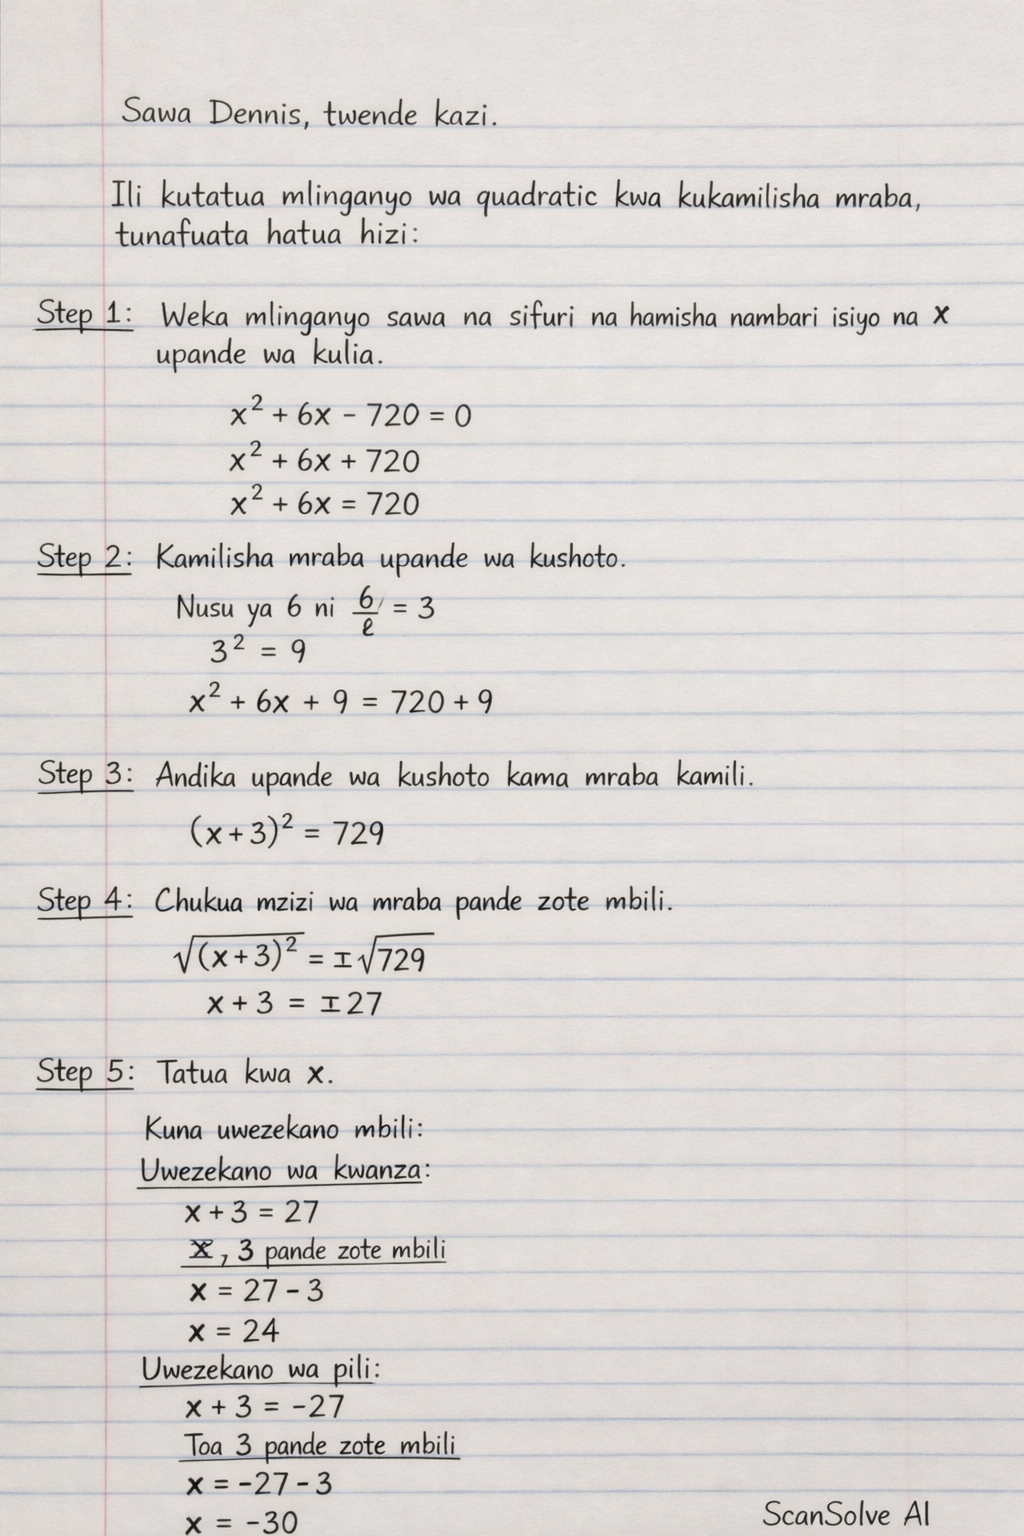 Sawa Dennis, twende kazi.
Ili kutatua mlinganyo wa quadratic kwa kukamilisha mraba,
tunafuata hatua hizi:
Step 1: Weka mlinganyo sawa na sifuri na hamisha nambari isiyo na x
upande wa kulia.
x² + 6x - 720 = 0
x² + 6x + 720
x² + 6x = 720
Step 2: Kamilisha mraba upande wa kushoto.
Nusu ya 6 ni 6/ℓ = 3
3² = 9
x² + 6x + 9 = 720 + 9
Step 3: Andika upande wa kushoto kama mraba kamili.
(x + 3)² = 729
Step 4: Chukua mzizi wa mraba pande zote mbili.
√(x + 3)² = ±√729
x + 3 = ±27
Step 5: Tatua kwa x.
Kuna uwezekano mbili:
Uwezekano wa kwanza:
x + 3 = 27
x, 3 pande zote mbili
x = 27 - 3
x = 24
Uwezekano wa pili:
x + 3 = -27
Toa 3 pande zote mbili
x = -27 - 3
x = -30
ScanSolve AI